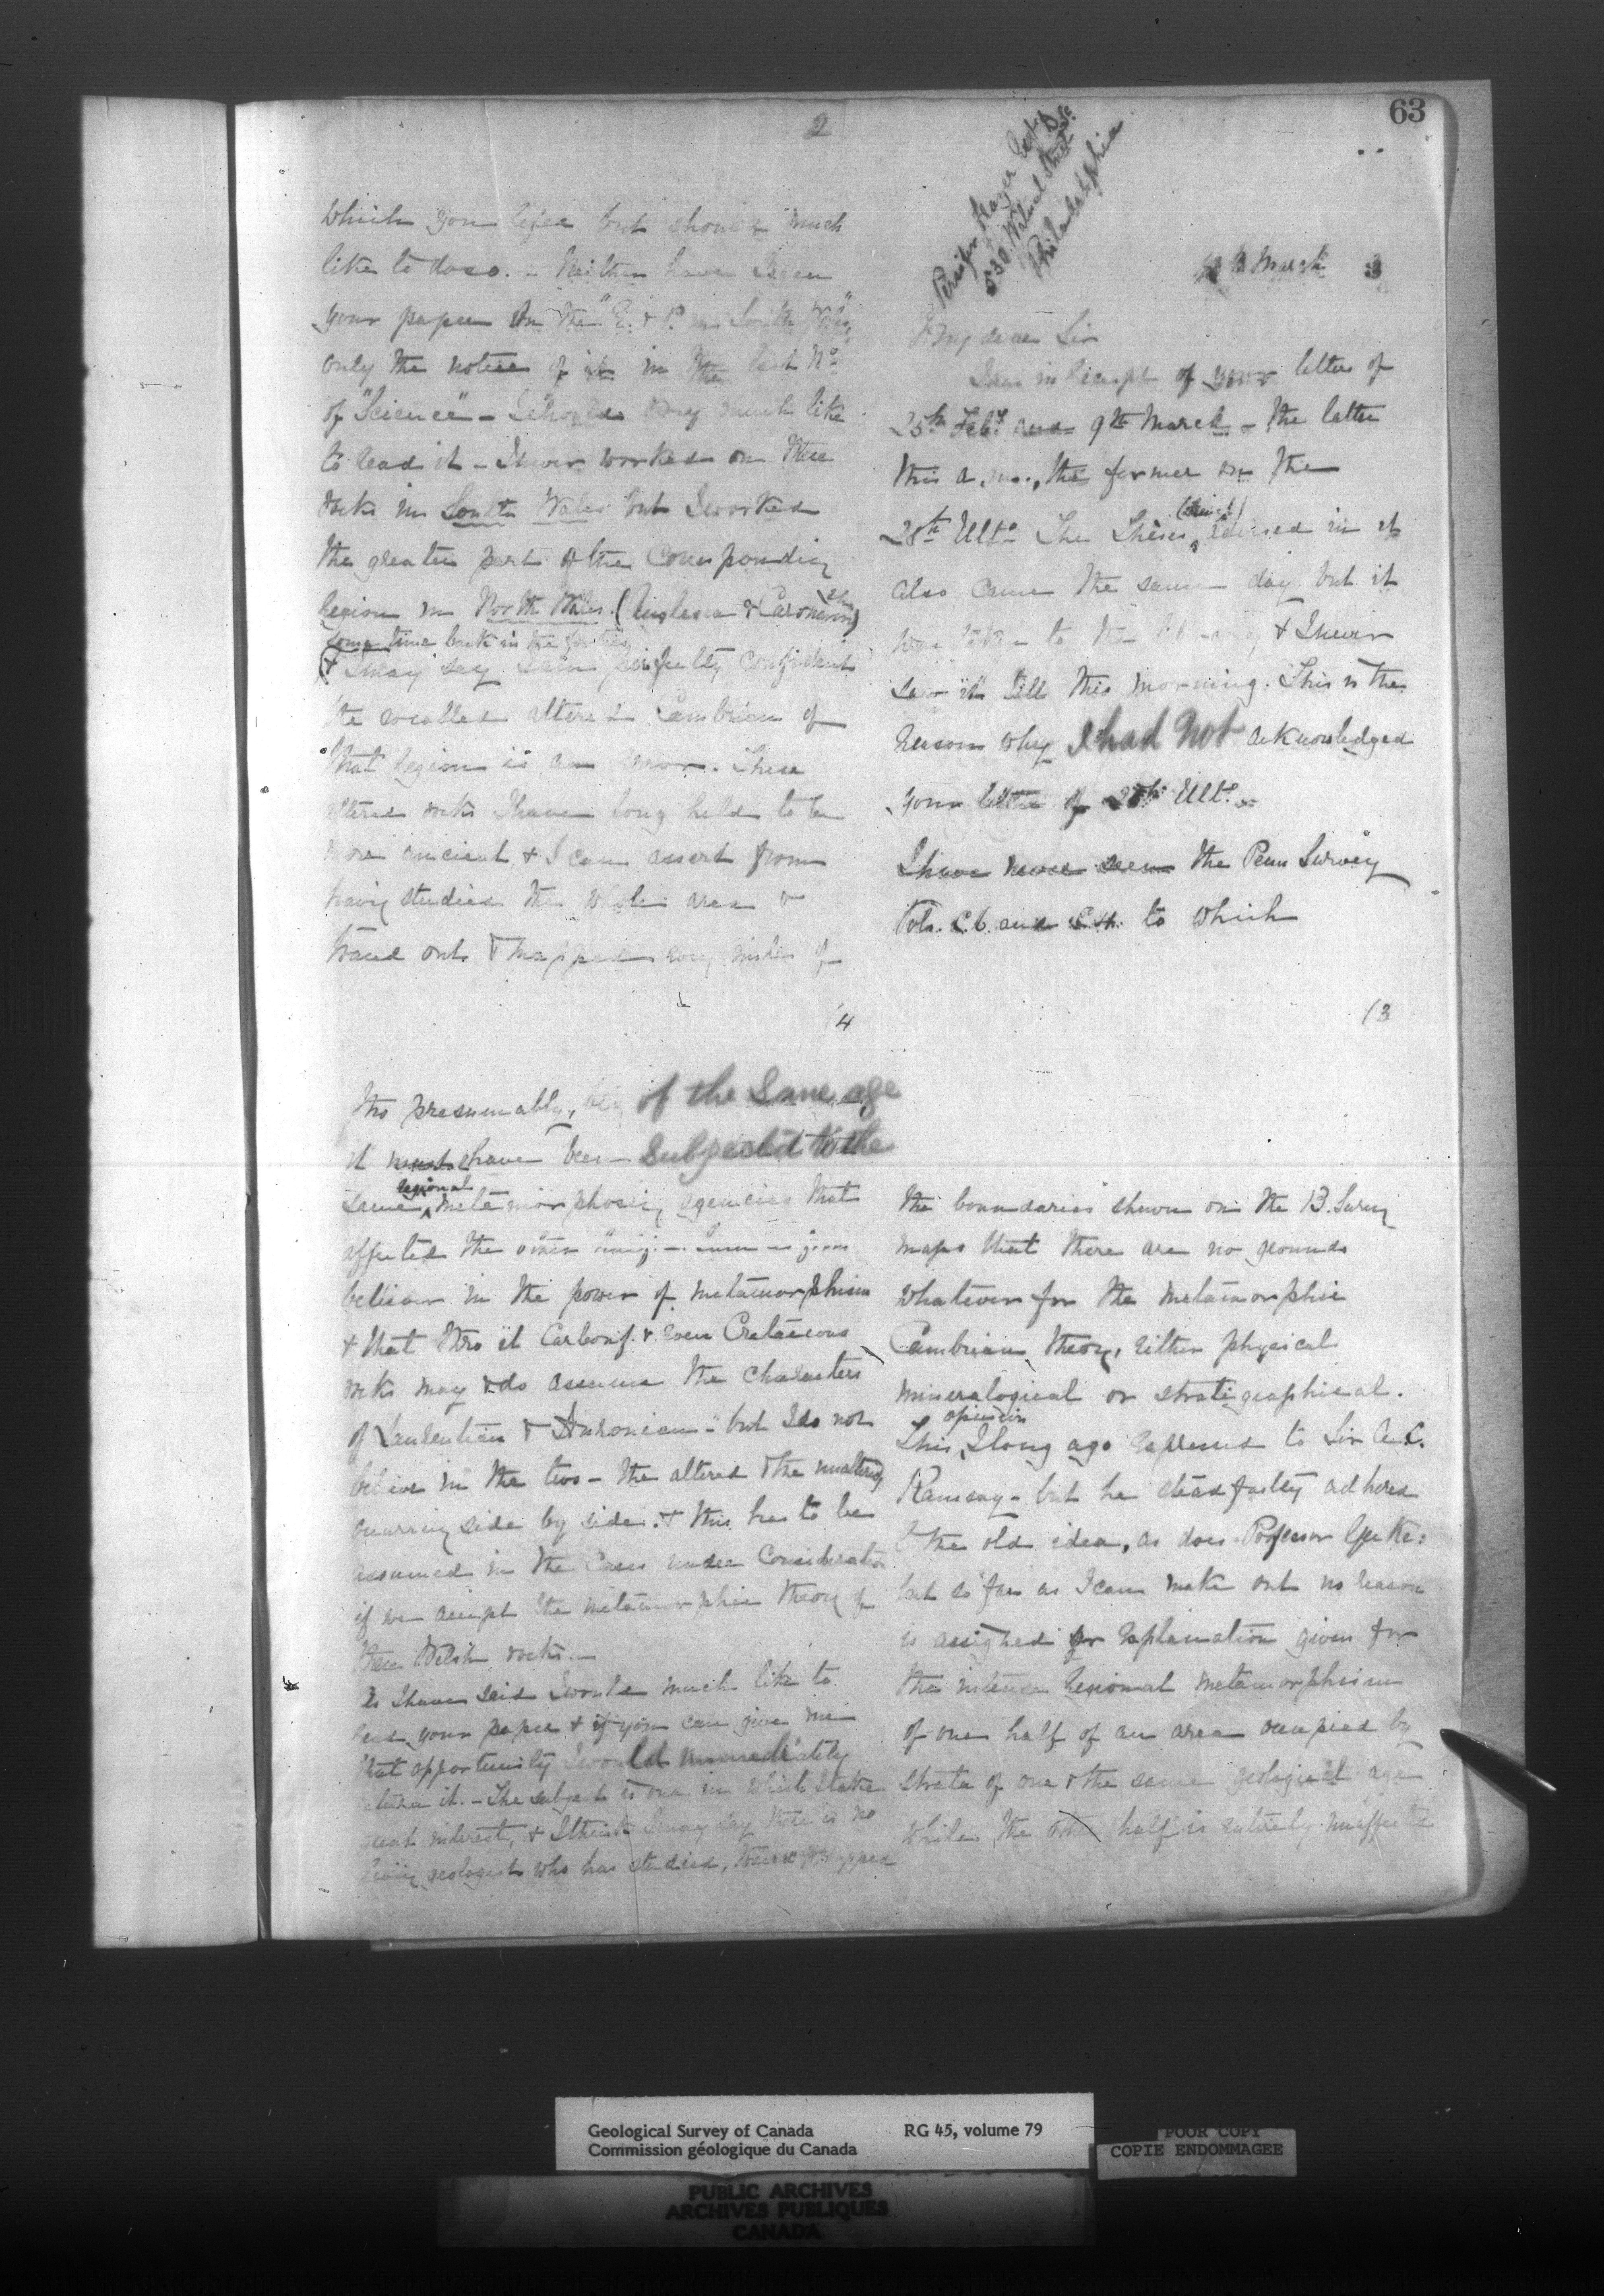 63
Persifor Frazer Esqre D.Sc.
530 Walnut Street
Philadelphia
12th March 3
My dear Sir
I am in receipt of your letters of
25th Feby and 9th March - the latter
this a.m., the former on the
28th Ulto The Thesis enclosed in it
also came the same day but it
was taken to the library & I never
saw it till this morning. This is the
reason why I had not acknowledged
your letter of 25th Ulto -
I have never seen the Penn Survey
Vols. C.6. and C.4. to which
2
which you refer but should much
like to do so. - Neither have I seen
your paper on the in South
only the notice of it in the last No
of "Science" - I should very much like
to read it - I never worked on these
rocks in South Wales but I worked
the greater part of the corresponding
region in North Wales. (Anglesea & Caernarvon)
some time back in the forties
& I may say I am perfectly confident
the so called altered Cambrian of
that region is an error. These
altered rocks I have long held to be
more ancient & I can assert from
having studied the whole area &
traced out & mapped many miles of
(3
the boundaries shewn on the B. Survey
maps that there are no grounds
whatever for the metamorphic
Cambrian theory, either physical
mineralogical or stratigraphical.
This opinion I long ago expressed to Sir A. C.
Ramsay - but he steadfastly adhered
to the old idea, as does Professor Geikie:
but so far as I can make out no reason
is assigned or explanation given for
the intense regional metamorphism
of one half of an area occupied by
strata of one & the same geological age
while the other half is entirely unaffected
(4
tho presumably, being of the same age
it must have been subjected to the
same regional metamorphosing agencies that
affected the other
believer in the power of metamorphism
& that thro it Carbonf. & even Cretaceous
rocks may & do assume the characters
of Laurentian & Huronian - but I do not
believe in the two - the altered & the unaltered
occurring side by side. & this has to be
assumed in the cases under consideration
if we accept the metamorphic theory of
these Welsh rocks. -
As I have said I would much like to
read your paper & if you can give me
that opportunity I would immediately
return it. - The subject is one in which I take
great interest, & I think I may say there is no
living geologist who has studied, & mapped
Geological Survey of Canada
Commission géologique du Canada
RG 45, volume 79
POOR COPY
COPIE ENDOMMAGEE
PUBLIC ARCHIVES
ARCHIVES PUBLIQUES
CANADA